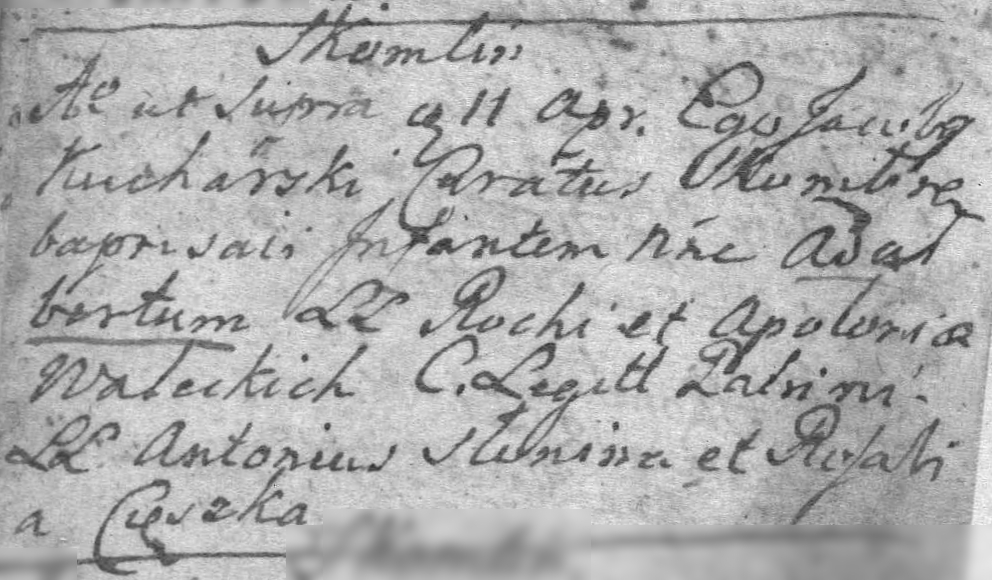 Skomlin
Ao ut supra q 11 Apr. Ego Jacobq
Kucharski Curatus Skomlinē
baptisavi Infantem nñe Adal
bertum LL Rochi et Apoloniæ
Waleckich C. Legitt Patrini
LL Antonius Stenina et Rosali
a Cieszka